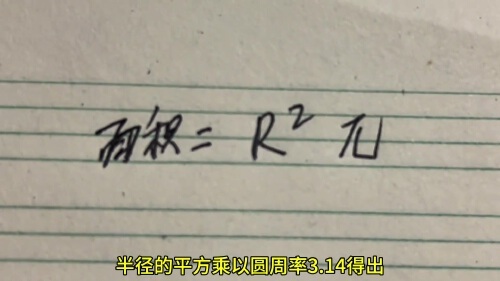 面积= R² π
半径的平方乘以圆周率3.14得出